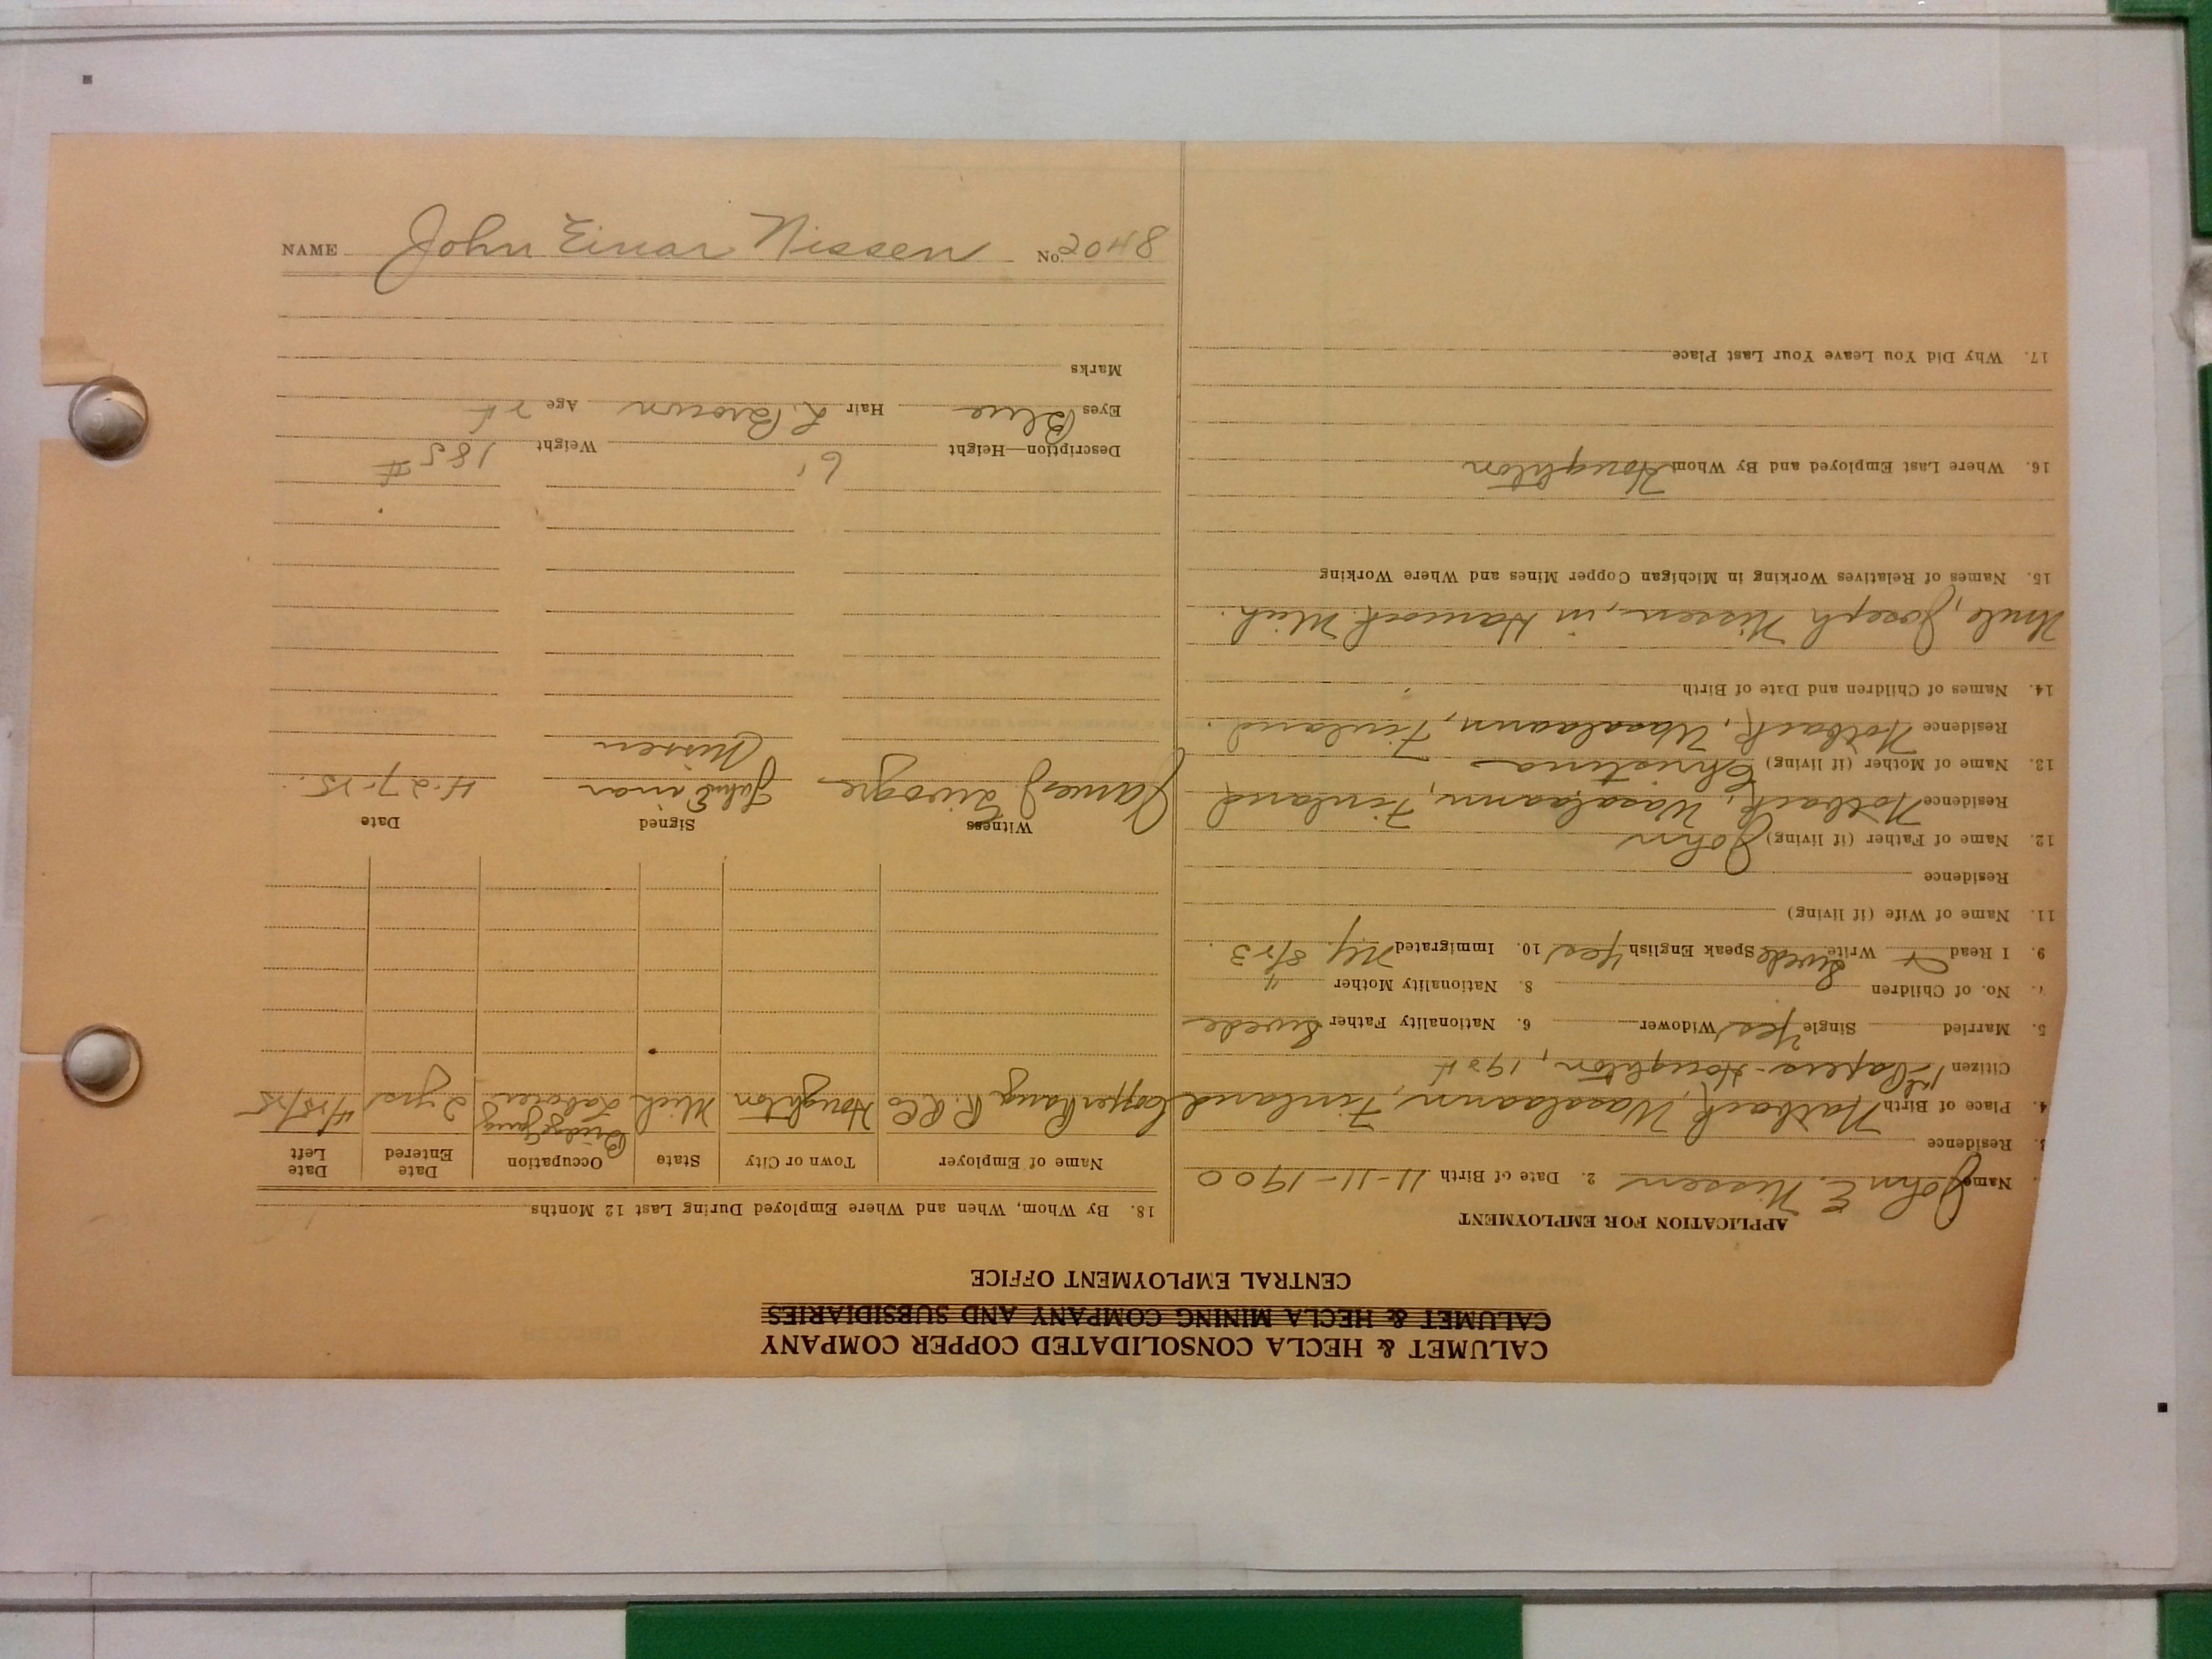 NAME John Einar Nissen No. 2048
CALUMET & HECLA CONSOLIDATED COPPER COMPANY
CALUMET & HECLA MINING COMPANY AND SUBSIDIARIES
CENTRAL EMPLOYMENT OFFICE
APPLICATION FOR EMPLOYMENT
Name John E. Nissen 2. Date of Birth 11-11-1900
3. Residence
4. Place of Birth Wasalaann, Finland
Citizen 1st Papers-Houghton, 1924
5. Married Single Yes Widower 6. Nationality Father Swede
7. No. of Children 8. Nationality Mother "
9. I Read & Write Swede Speak English Yes 10. Immigrated NY 8/23.
11. Name of Wife (if living)
Residence
12. Name of Father (if living) John
Residence Wasalaann, Finland
13. Name of Mother (if living) Christina
Residence Wasalaann, Finland.
14. Names of Children and Date of Birth
Uncle, Joseph Nissen, in Hancock Mich.
15. Names of Relatives Working in Michigan Copper Mines and Where Working
16. Where Last Employed and By Whom Houghton
17. Why Did You Leave Your Last Place
18. By Whom, When and Where Employed During Last 12 Months
Name of Employer Town or City State Occupation Date Entered Date Left
Copper Range R.R Co Houghton Mich Bridge Gang Laborer 2 yrs 4/25/25
Witness Signed Date
James John Einar Nissen 4-27-25.
Description—Height 6' Weight 185 #
Eyes Blue Hair L. Brown Age 24
Marks